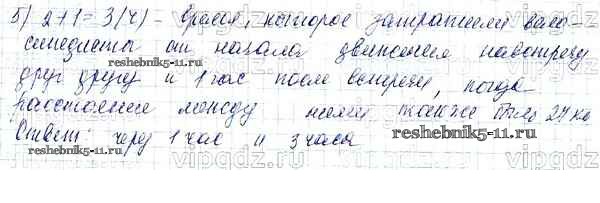 5) 2+1=3(ч) - время, которое затратили вело-
синедисты от начала движения навстречу
друг другу и 1 час после встречи, когда
reshebnik5-11.ru
расстояние между ними также было 27 км
Ответ: через 1 час и 3 часа
reshebnik5-11.ru
vipgdz.ru